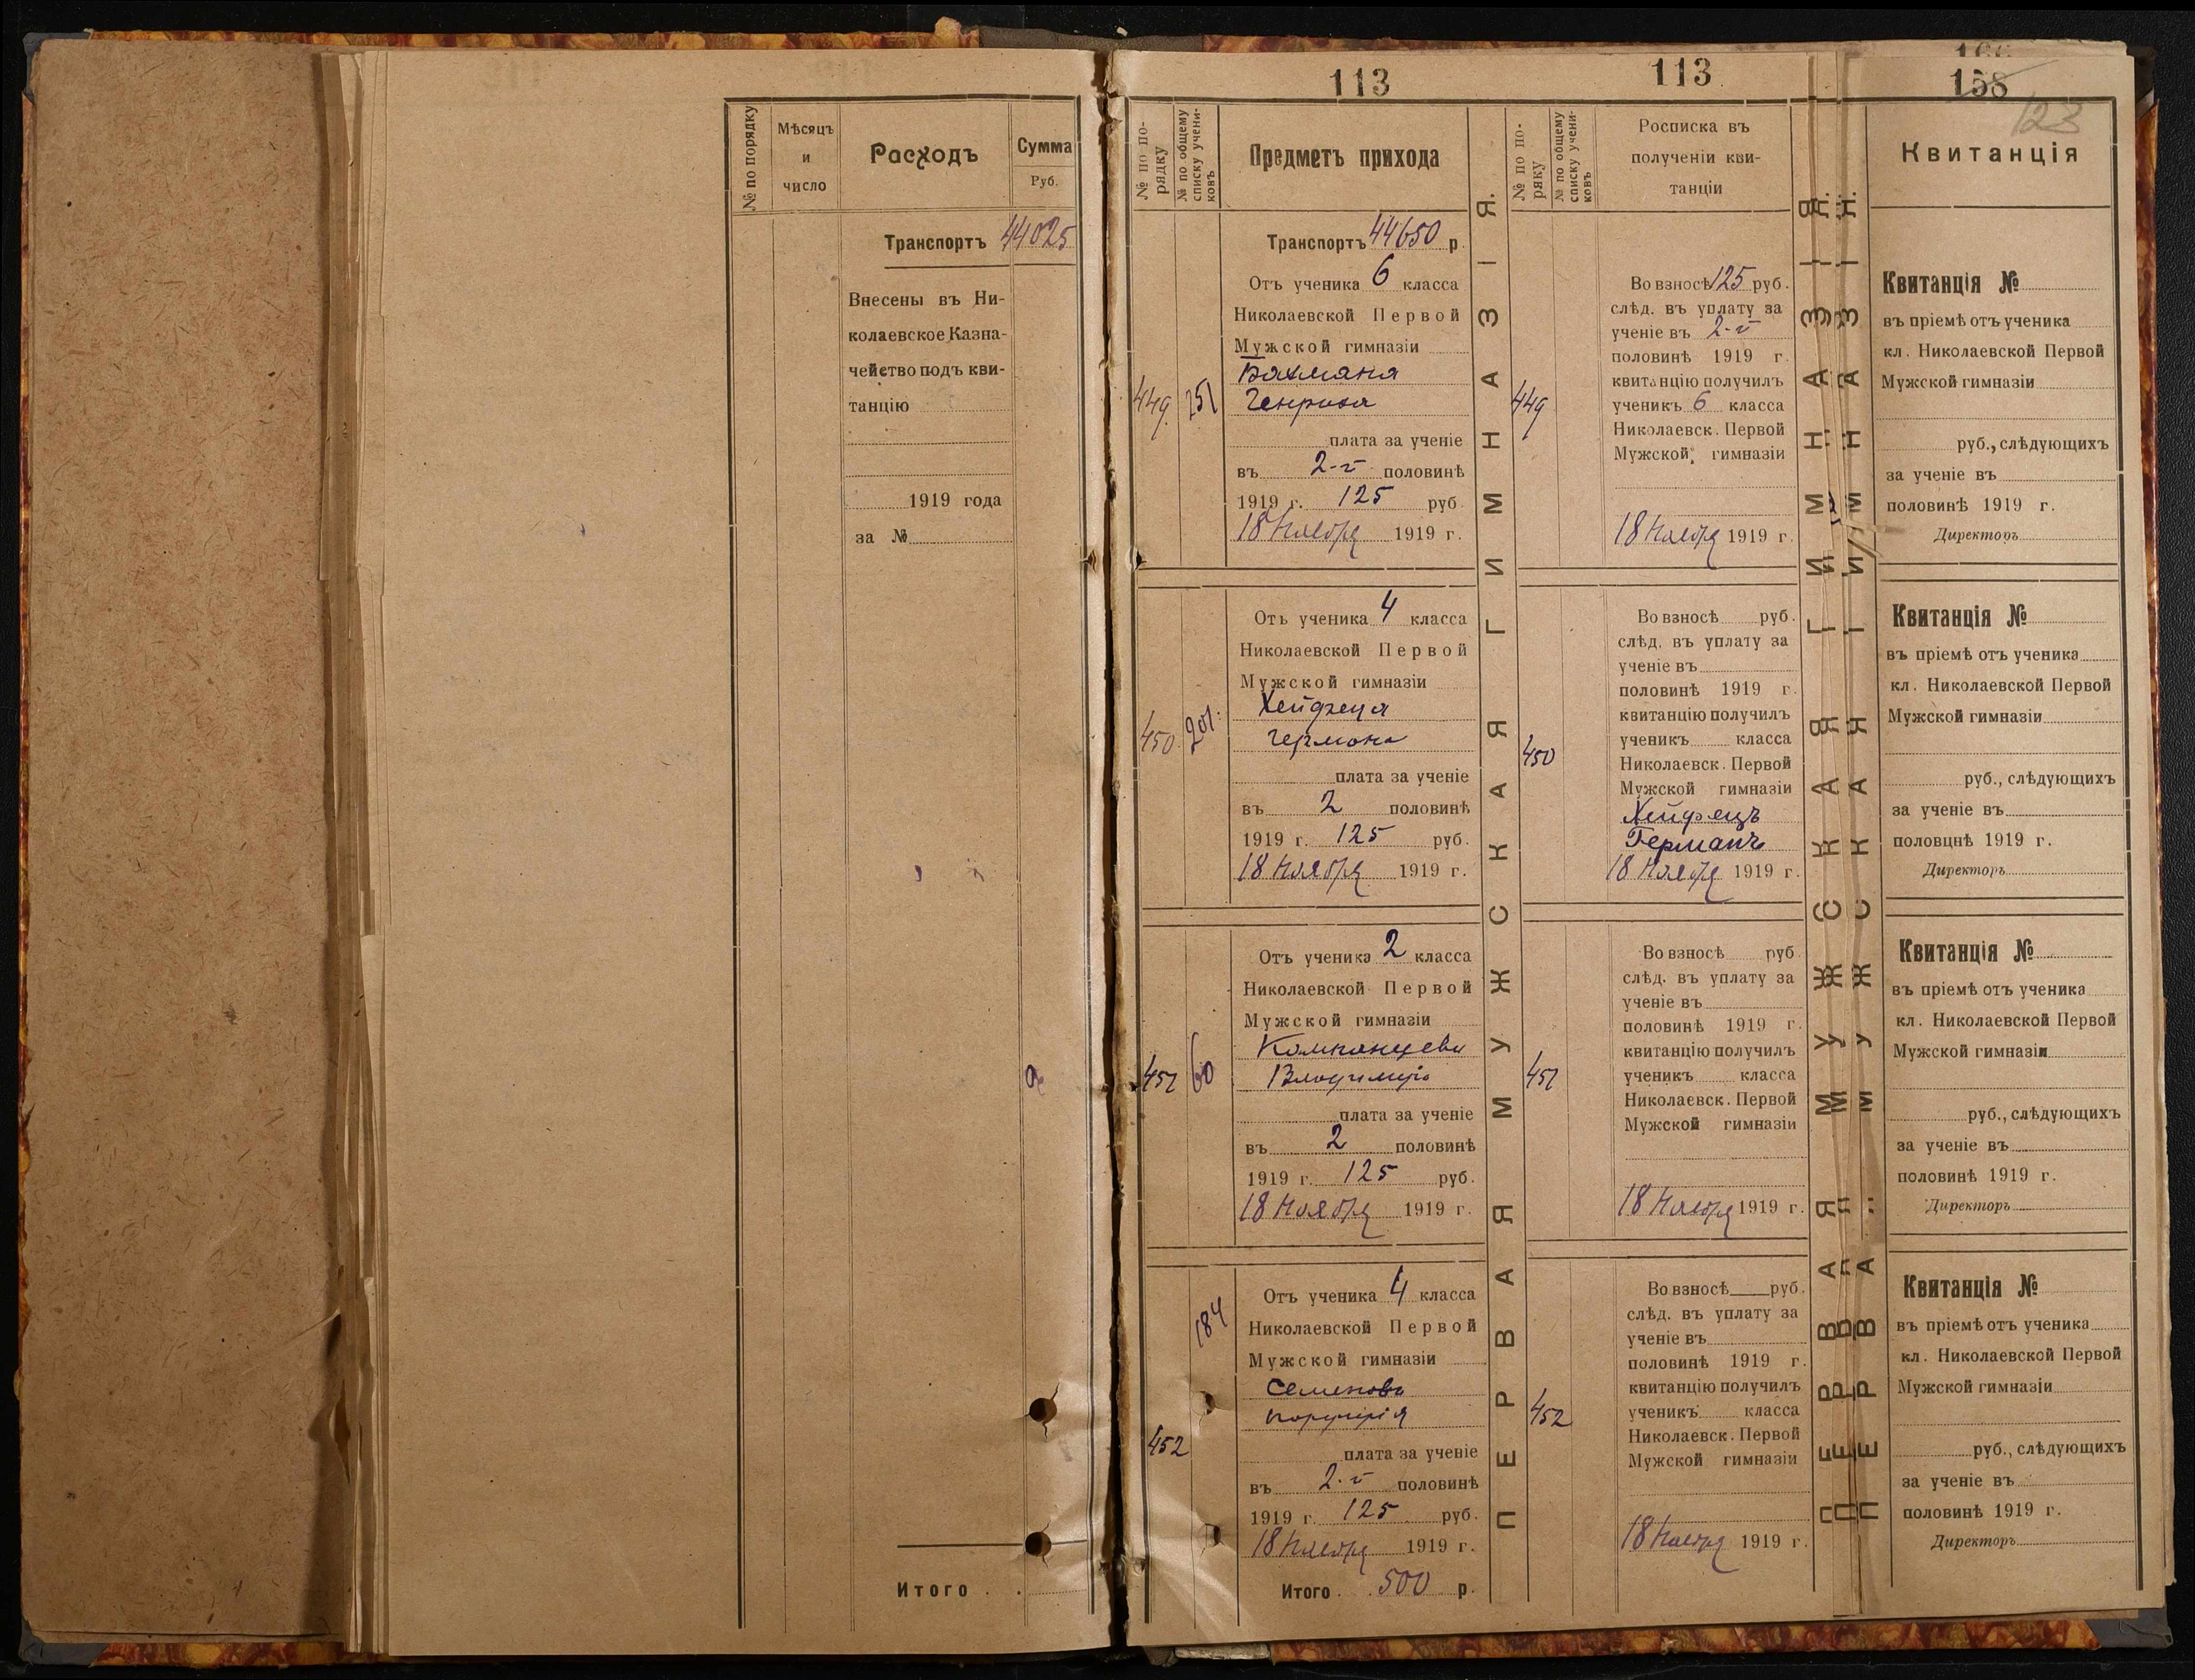 № по порядку
Мѣсяцъ
и
число
Расходъ
Сумма
Руб.
Транспортъ 44025
Внесены въ Ни-
колаевское Казна-
чейство подъ кви-
танцію
1919 года
за №
Итого . .
113
№ по по-
рядку
№ по общему
списку учени-
ковъ
Предметъ прихода
Транспортъ 44650 р.
Отъ ученика 6 класса
Николаевской Первой
Мужской гимназіи
Бахмана
449 251 Генриха
плата за ученіе
въ 2-й половинѣ
1919 г. 125 руб.
18 Ноября 1919 г.
Отъ ученика 4 класса
Николаевской Первой
Мужской гимназіи
Хейфеца
450 201 Германа
плата за ученіе
въ 2 половинѣ
1919 г. 125 руб.
18 Ноября 1919 г.
Отъ ученика 2 класса
Николаевской Первой
Мужской гимназіи
Компанцева
451 60 Владимира
плата за ученіе
въ 2 половинѣ
1919 г. 125 руб.
18 Ноября 1919 г.
Отъ ученика 4 класса
184
Николаевской Первой
Мужской гимназіи
Семенова
452
плата за ученіе
въ 2-й половинѣ
1919 г. 125 руб.
18 Ноября 1919 г.
Итого . . 500 р.
ПЕРВАЯ МУЖСКАЯ ГИМНАЗІЯ.
113
№ по по-
ряку
№ по общему
списку учени-
ковъ
Росписка въ
полученіи кви-
танціи
Во взносѣ 125 руб.
слѣд. въ уплату за
ученіе въ 2-й
половинѣ 1919 г.
квитанцію получилъ
449 ученикъ 6 класса
Николаевск. Первой
Мужской гимназіи
18 Ноября 1919 г.
Во взносѣ руб.
слѣд. въ уплату за
ученіе въ
половинѣ 1919 г.
квитанцію получилъ
ученикъ класса
450 Николаевск. Первой
Мужской гимназіи
Хейфецъ
Германъ
18 Ноября 1919 г.
Во взносѣ руб.
слѣд. въ уплату за
ученіе въ
половинѣ 1919 г.
квитанцію получилъ
451 ученикъ класса
Николаевск. Первой
Мужской гимназіи
18 Ноября 1919 г.
Во взносѣ руб.
слѣд. въ уплату за
ученіе въ
половинѣ 1919 г.
квитанцію получилъ
452 ученикъ класса
Николаевск. Первой
Мужской гимназіи
18 Ноября 1919 г.
ПЕРВАЯ МУЖСКАЯ ГИМНАЗІЯ.
158
123
Квитанція
Квитанція №
въ пріемѣ отъ ученика
кл. Николаевской Первой
Мужской гимназіи
руб., слѣдующихъ
за ученіе въ
половинѣ 1919 г.
Директоръ
Квитанція №
въ пріемѣ отъ ученика
кл. Николаевской Первой
Мужской гимназіи
руб., слѣдующихъ
за ученіе въ
половцнѣ 1919 г.
Директоръ
Квитанція №
въ пріемѣ отъ ученика
кл. Николаевской Первой
Мужской гимназіи
руб., слѣдующихъ
за ученіе въ
половинѣ 1919 г.
Директоръ
Квитанція №
въ пріемѣ отъ ученика
кл. Николаевской Первой
Мужской гимназіи
руб., слѣдующихъ
за ученіе въ
половинѣ 1919 г.
Директоръ